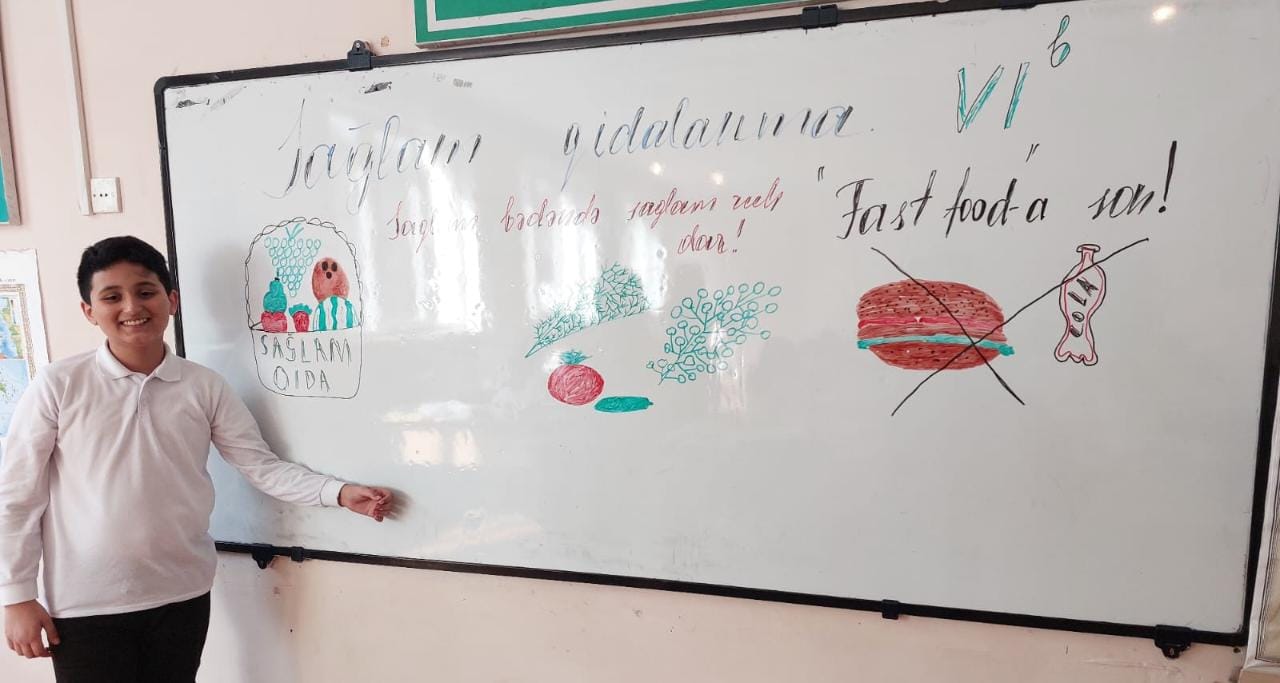 Sağlam qidalanma. VI b
Sağlam bədəndə sağlam ruh
olar!
"Fast food"-a son!
SAĞLAM
QIDA
COLA